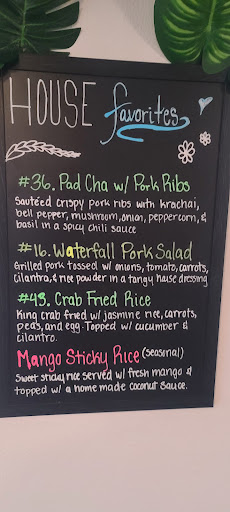 HOUSE favorites
#36. Pad Cha w/ Pork Ribs
Sauteéd crispy pork ribs with krachai,
bell pepper, mushroom, onion, peppercorn, &
basil in a spicy chili sauce
#16. Waterfall Pork Salad
Grilled pork tossed w/ onions, tomato, carrots,
cilantro, & rice powder in a tangy house dressing
#43. Crab Fried Rice
King crab fried w/ jasmine rice, carrots,
peas, and egg. Topped w/ cucumber &
cilantro.
Mango Sticky Rice (seasonal)
Sweet sticky rice served w/ fresh mango &
topped w/ a home made coconut sauce.